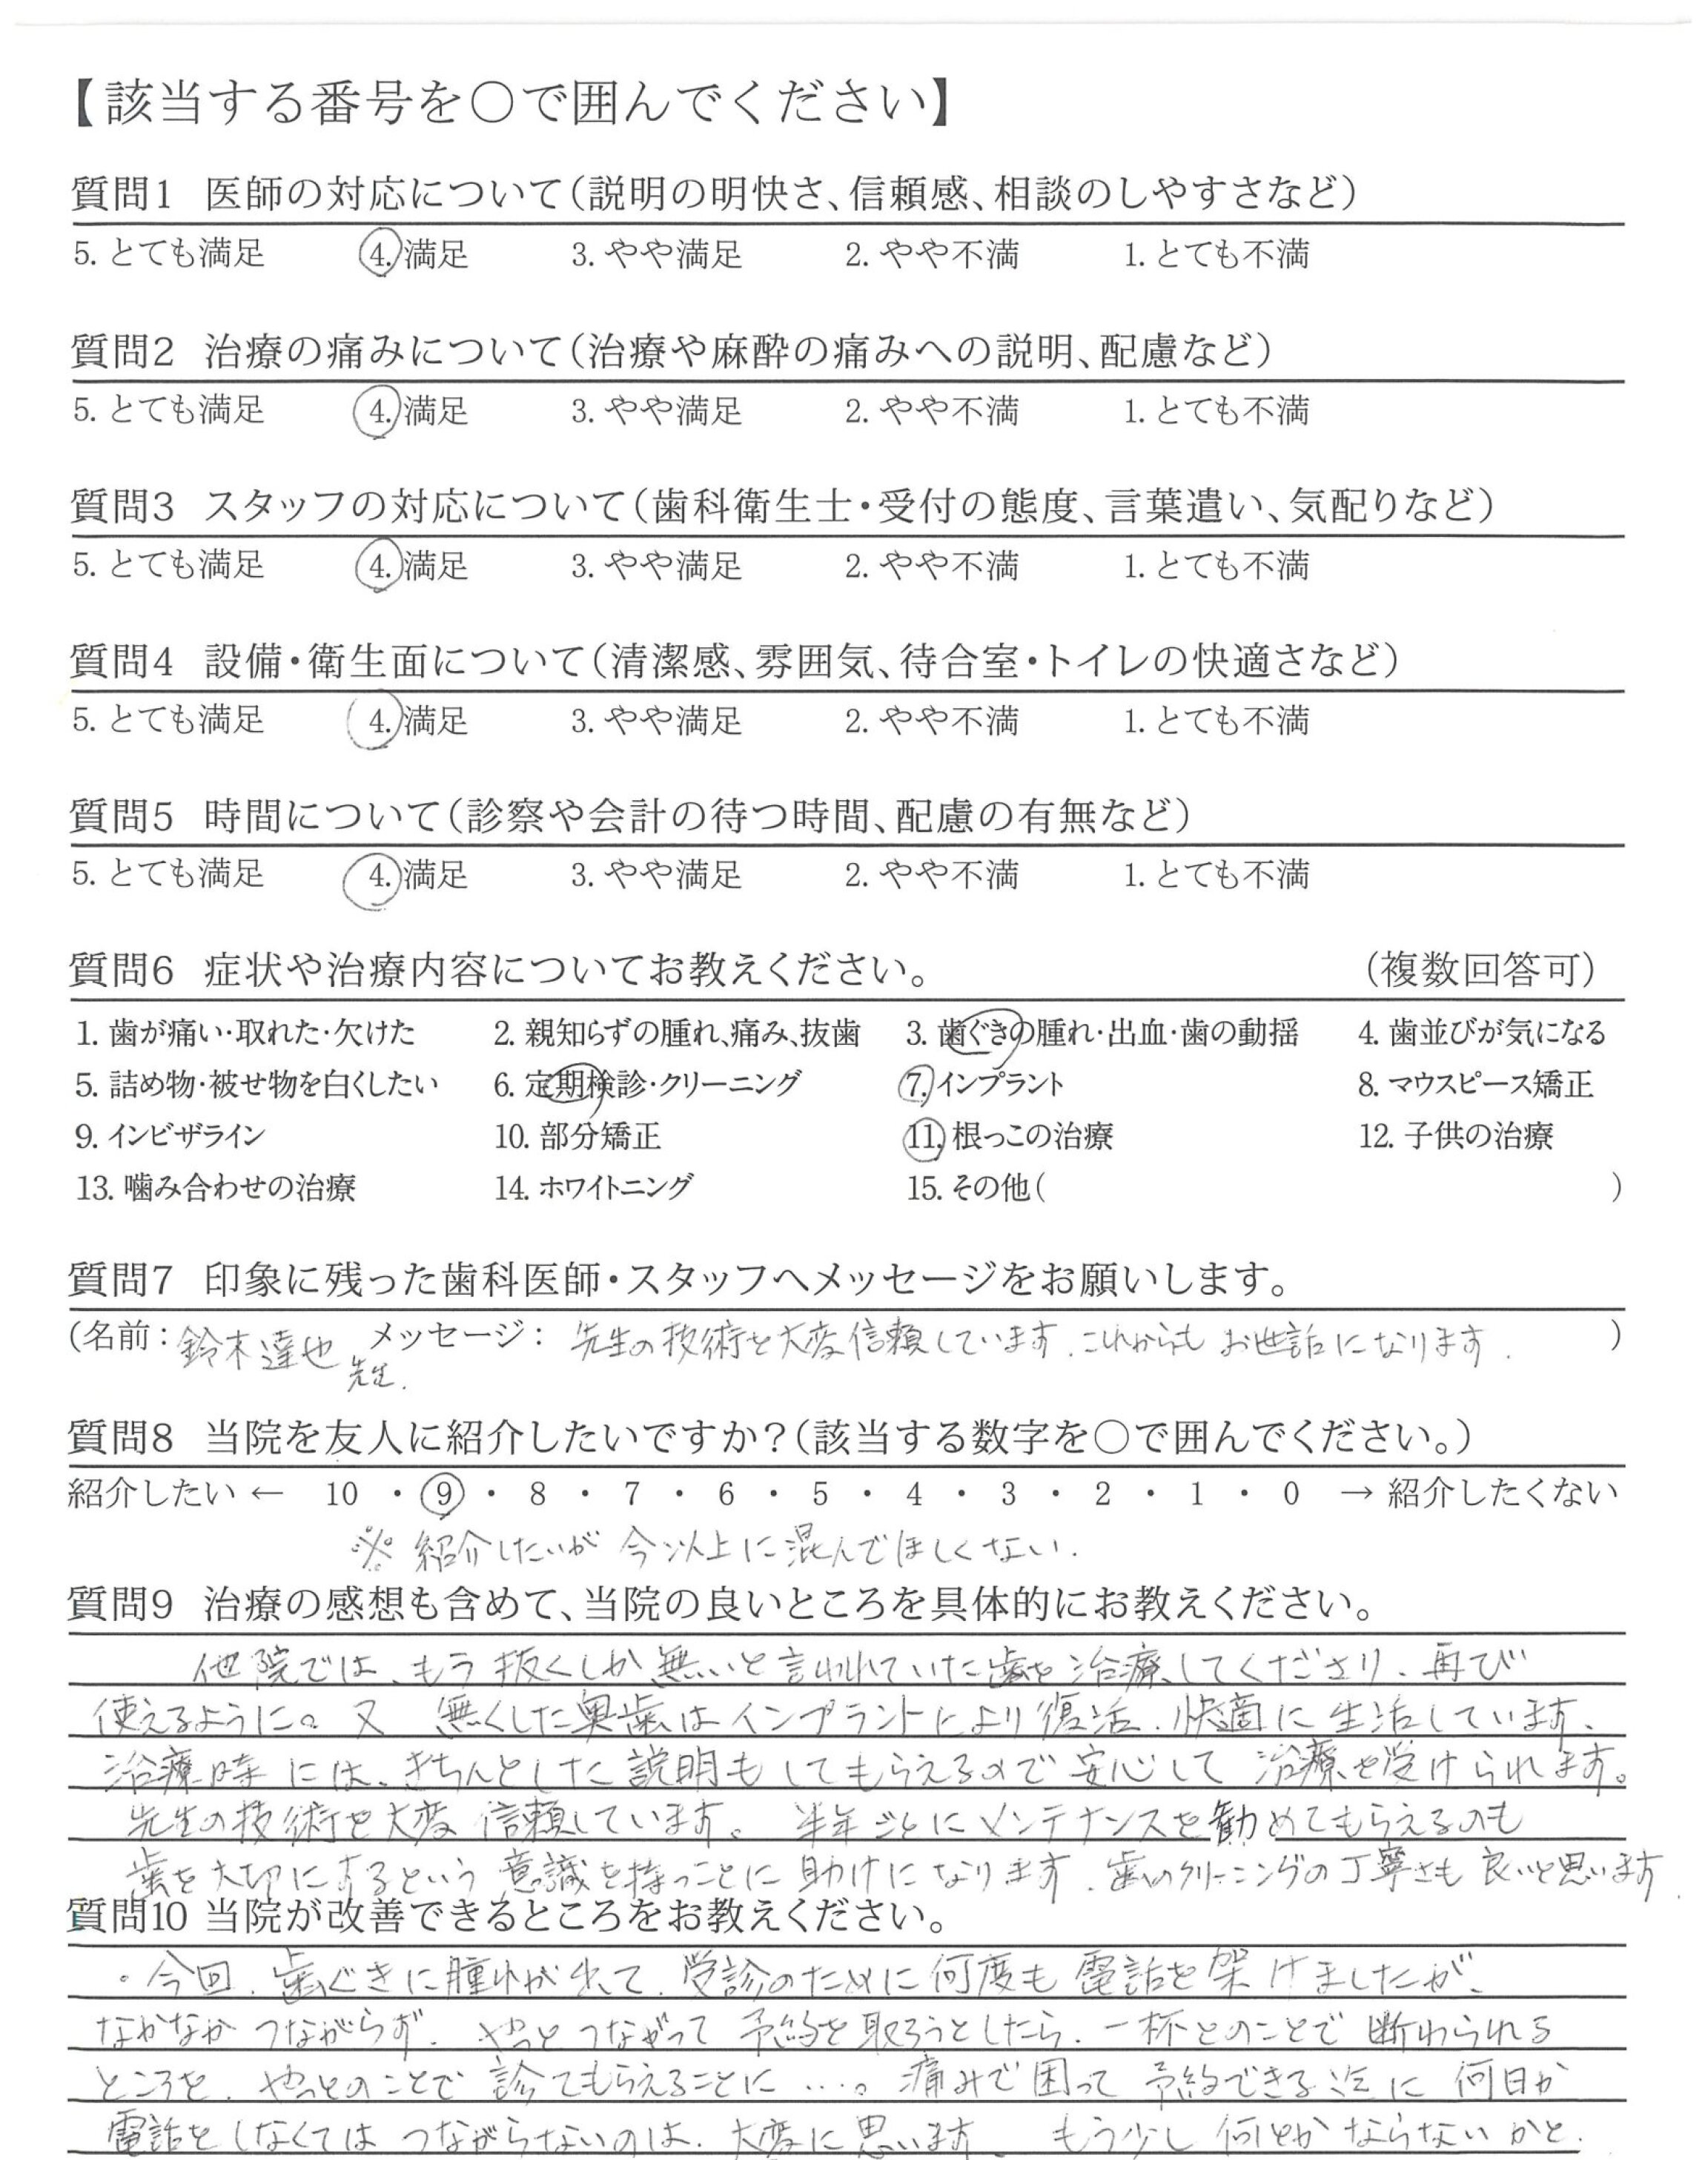 【該当する番号を○で囲んでください】
質問1 医師の対応について(説明の明快さ、信頼感、相談のしやすさなど)
5. とても満足 4. 満足 3. やや満足 2. やや不満 1. とても不満
質問2 治療の痛みについて(治療や麻酔の痛みへの説明、配慮など)
5. とても満足 4. 満足 3. やや満足 2. やや不満 1. とても不満
質問3 スタッフの対応について(歯科衛生士・受付の態度、言葉遣い、気配りなど)
5. とても満足 4. 満足 3. やや満足 2. やや不満 1. とても不満
質問4 設備・衛生面について(清潔感、雰囲気、待合室・トイレの快適さなど)
5. とても満足 4. 満足 3. やや満足 2. やや不満 1. とても不満
質問5 時間について(診察や会計の待つ時間、配慮の有無など)
5. とても満足 4. 満足 3. やや満足 2. やや不満 1. とても不満
質問6 症状や治療内容についてお教えください。 (複数回答可)
1. 歯が痛い・取れた・欠けた 2. 親知らずの腫れ、痛み、抜歯 3. 歯ぐきの腫れ・出血・歯の動揺 4. 歯並びが気になる
5. 詰め物・被せ物を白くしたい 6. 定期検診・クリーニング 7. インプラント 8. マウスピース矯正
9. インビザライン 10. 部分矯正 11. 根っこの治療 12. 子供の治療
13. 噛み合わせの治療 14. ホワイトニング 15. その他( )
質問7 印象に残った歯科医師・スタッフへメッセージをお願いします。
(名前: 鈴木達也先生. メッセージ: 先生の技術を大変信頼しています. これからも お世話になります. )
質問8 当院を友人に紹介したいですか?(該当する数字を○で囲んでください。)
紹介したい ← 10 ・ 9 ・ 8 ・ 7 ・ 6 ・ 5 ・ 4 ・ 3 ・ 2 ・ 1 ・ 0 → 紹介したくない
※ 紹介したいが 今以上に混んでほしくない.
質問9 治療の感想も含めて、当院の良いところを具体的にお教えください。
他院では、もう抜くしか無いと言われていた歯を治療してくださり、再び
使えるように。又 無くした奥歯はインプラントにより復活. 快適に生活しています、
治療時には、きちんとした説明もしてもらえるので安心して 治療を受けられます。
先生の技術を大変 信頼しています。 半年ごとにメンテナンスを勧めてもらえるのも
歯を大切にするという意識を持つことに助けになります. 歯のクリーニングの丁寧さも良いと思います.
質問10 当院が改善できるところをお教えください。
・今回. 歯ぐきに腫れが出て. 受診のために何度も 電話を架けましたが、
なかなかつながらず. やっとつながって 予約を取ろうとしたら. 一杯とのことで断わられる
ところを. やっとのことで 診てもらえることに…。痛みで困って 予約できる迄に 何日か
電話をしなくては つながらないのは. 大変に思います。 もう少し何とかならないかと.